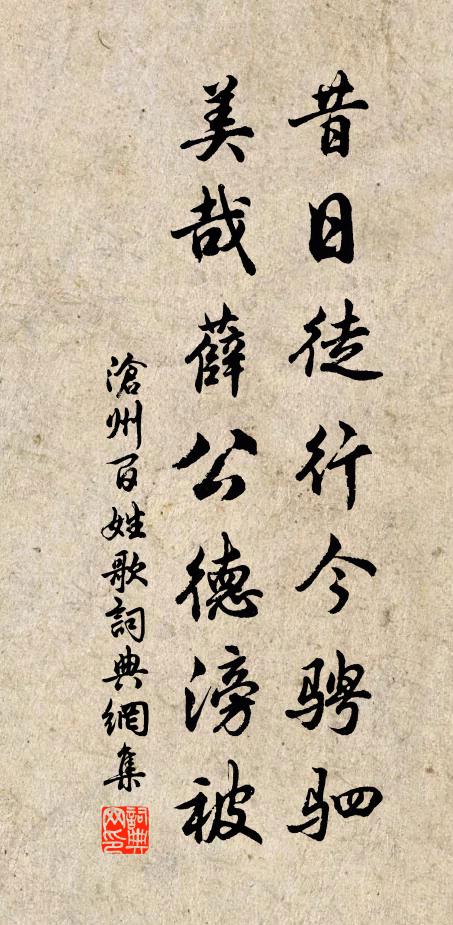 昔日徒行今骋驷
美哉薛公德滂被
滄州百姓歌詞典網集
詞典网印